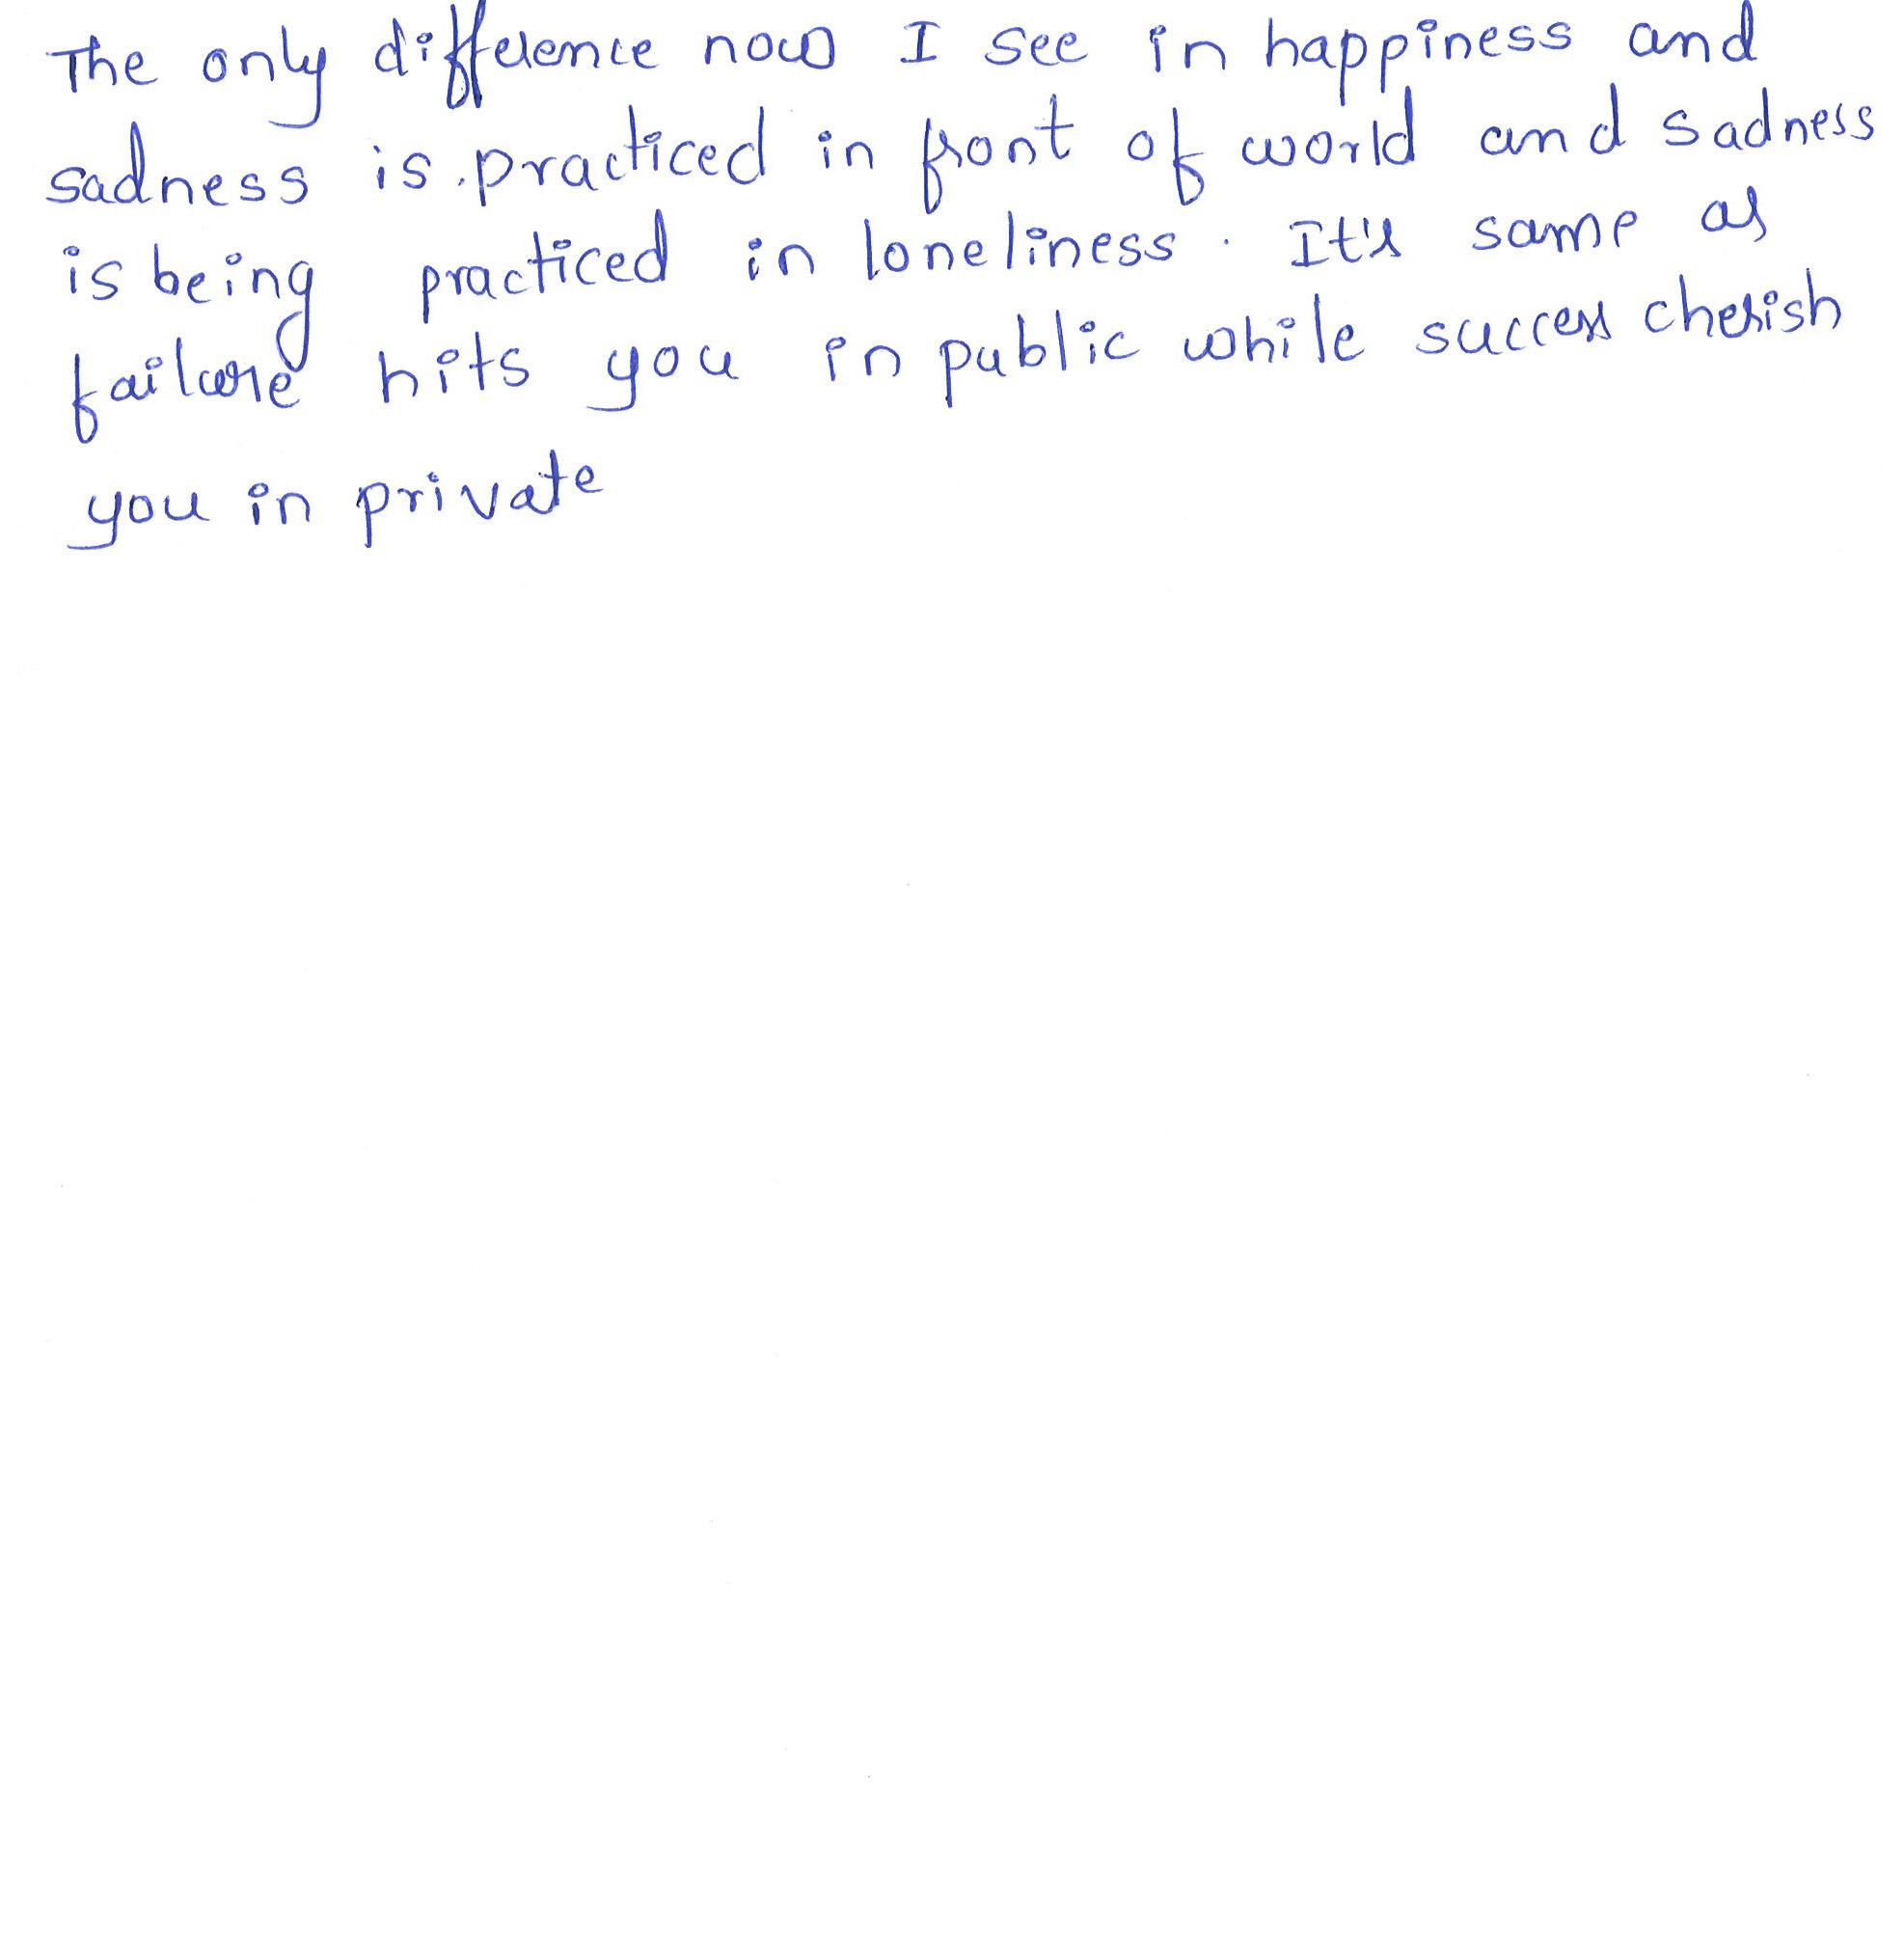 The only difference now I see in happiness and
sadness is practiced in front of world and sadness
is being practiced in loneliness. It's same as
failure hits you in public while success cherish
you in private